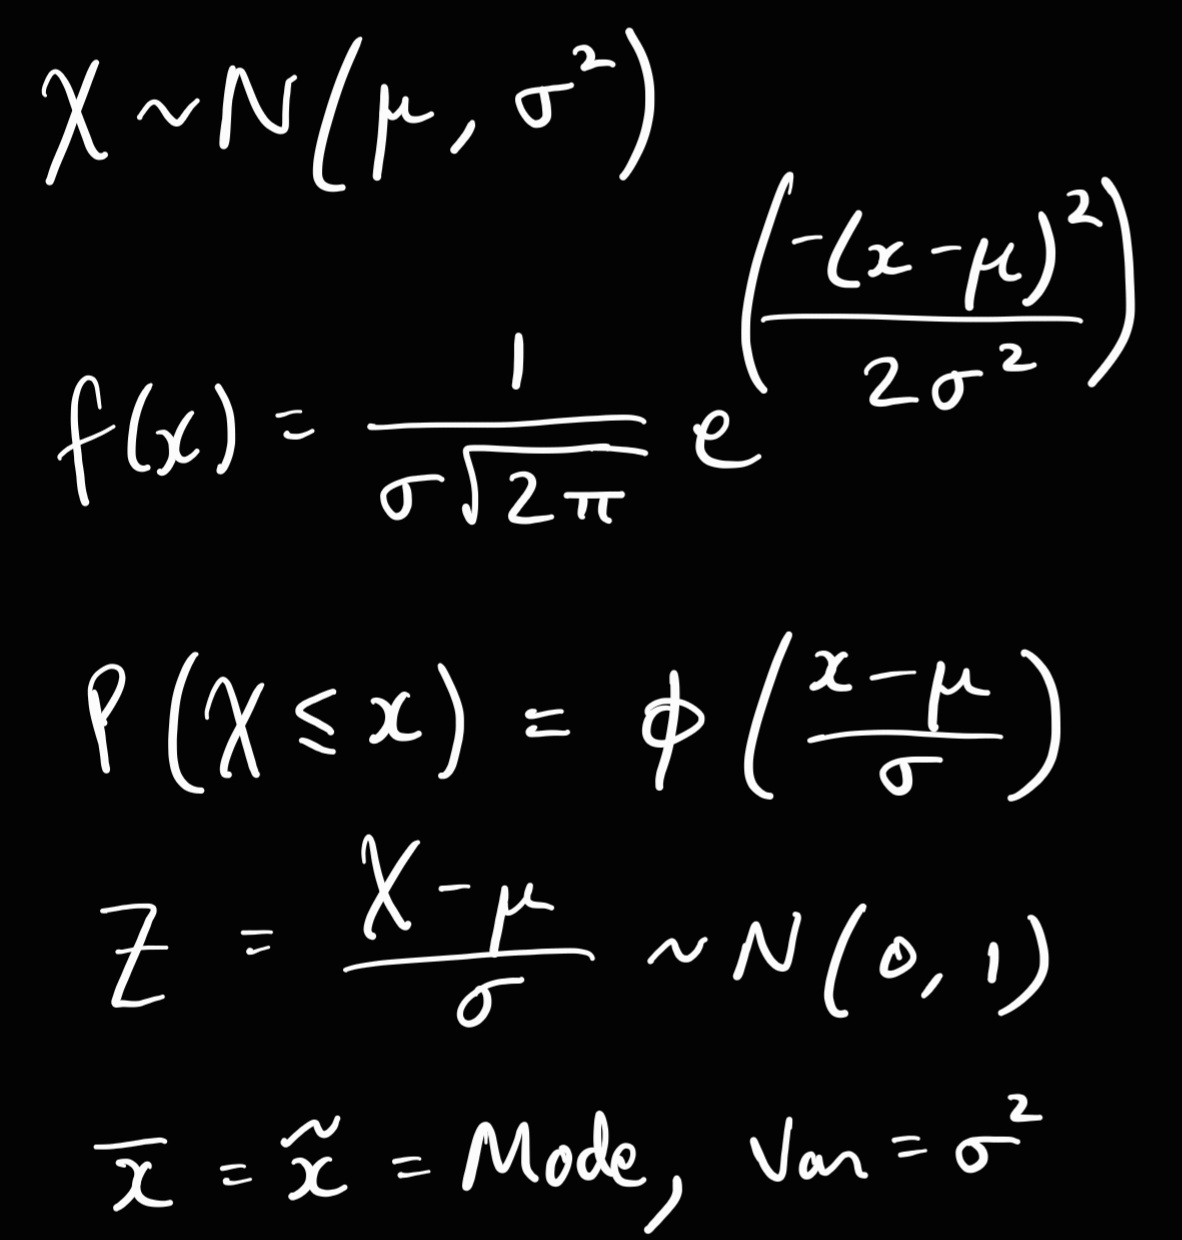 X ~ N(μ, σ²)
f(x) = 1/(σ√(2π)) e^(-(x-μ)²/(2σ²))
P(X ≤ x) = ϕ((x-μ)/σ)
Z = (X-μ)/σ ~ N(0, 1)
x̅ = x̃ = Mode, Var = σ²